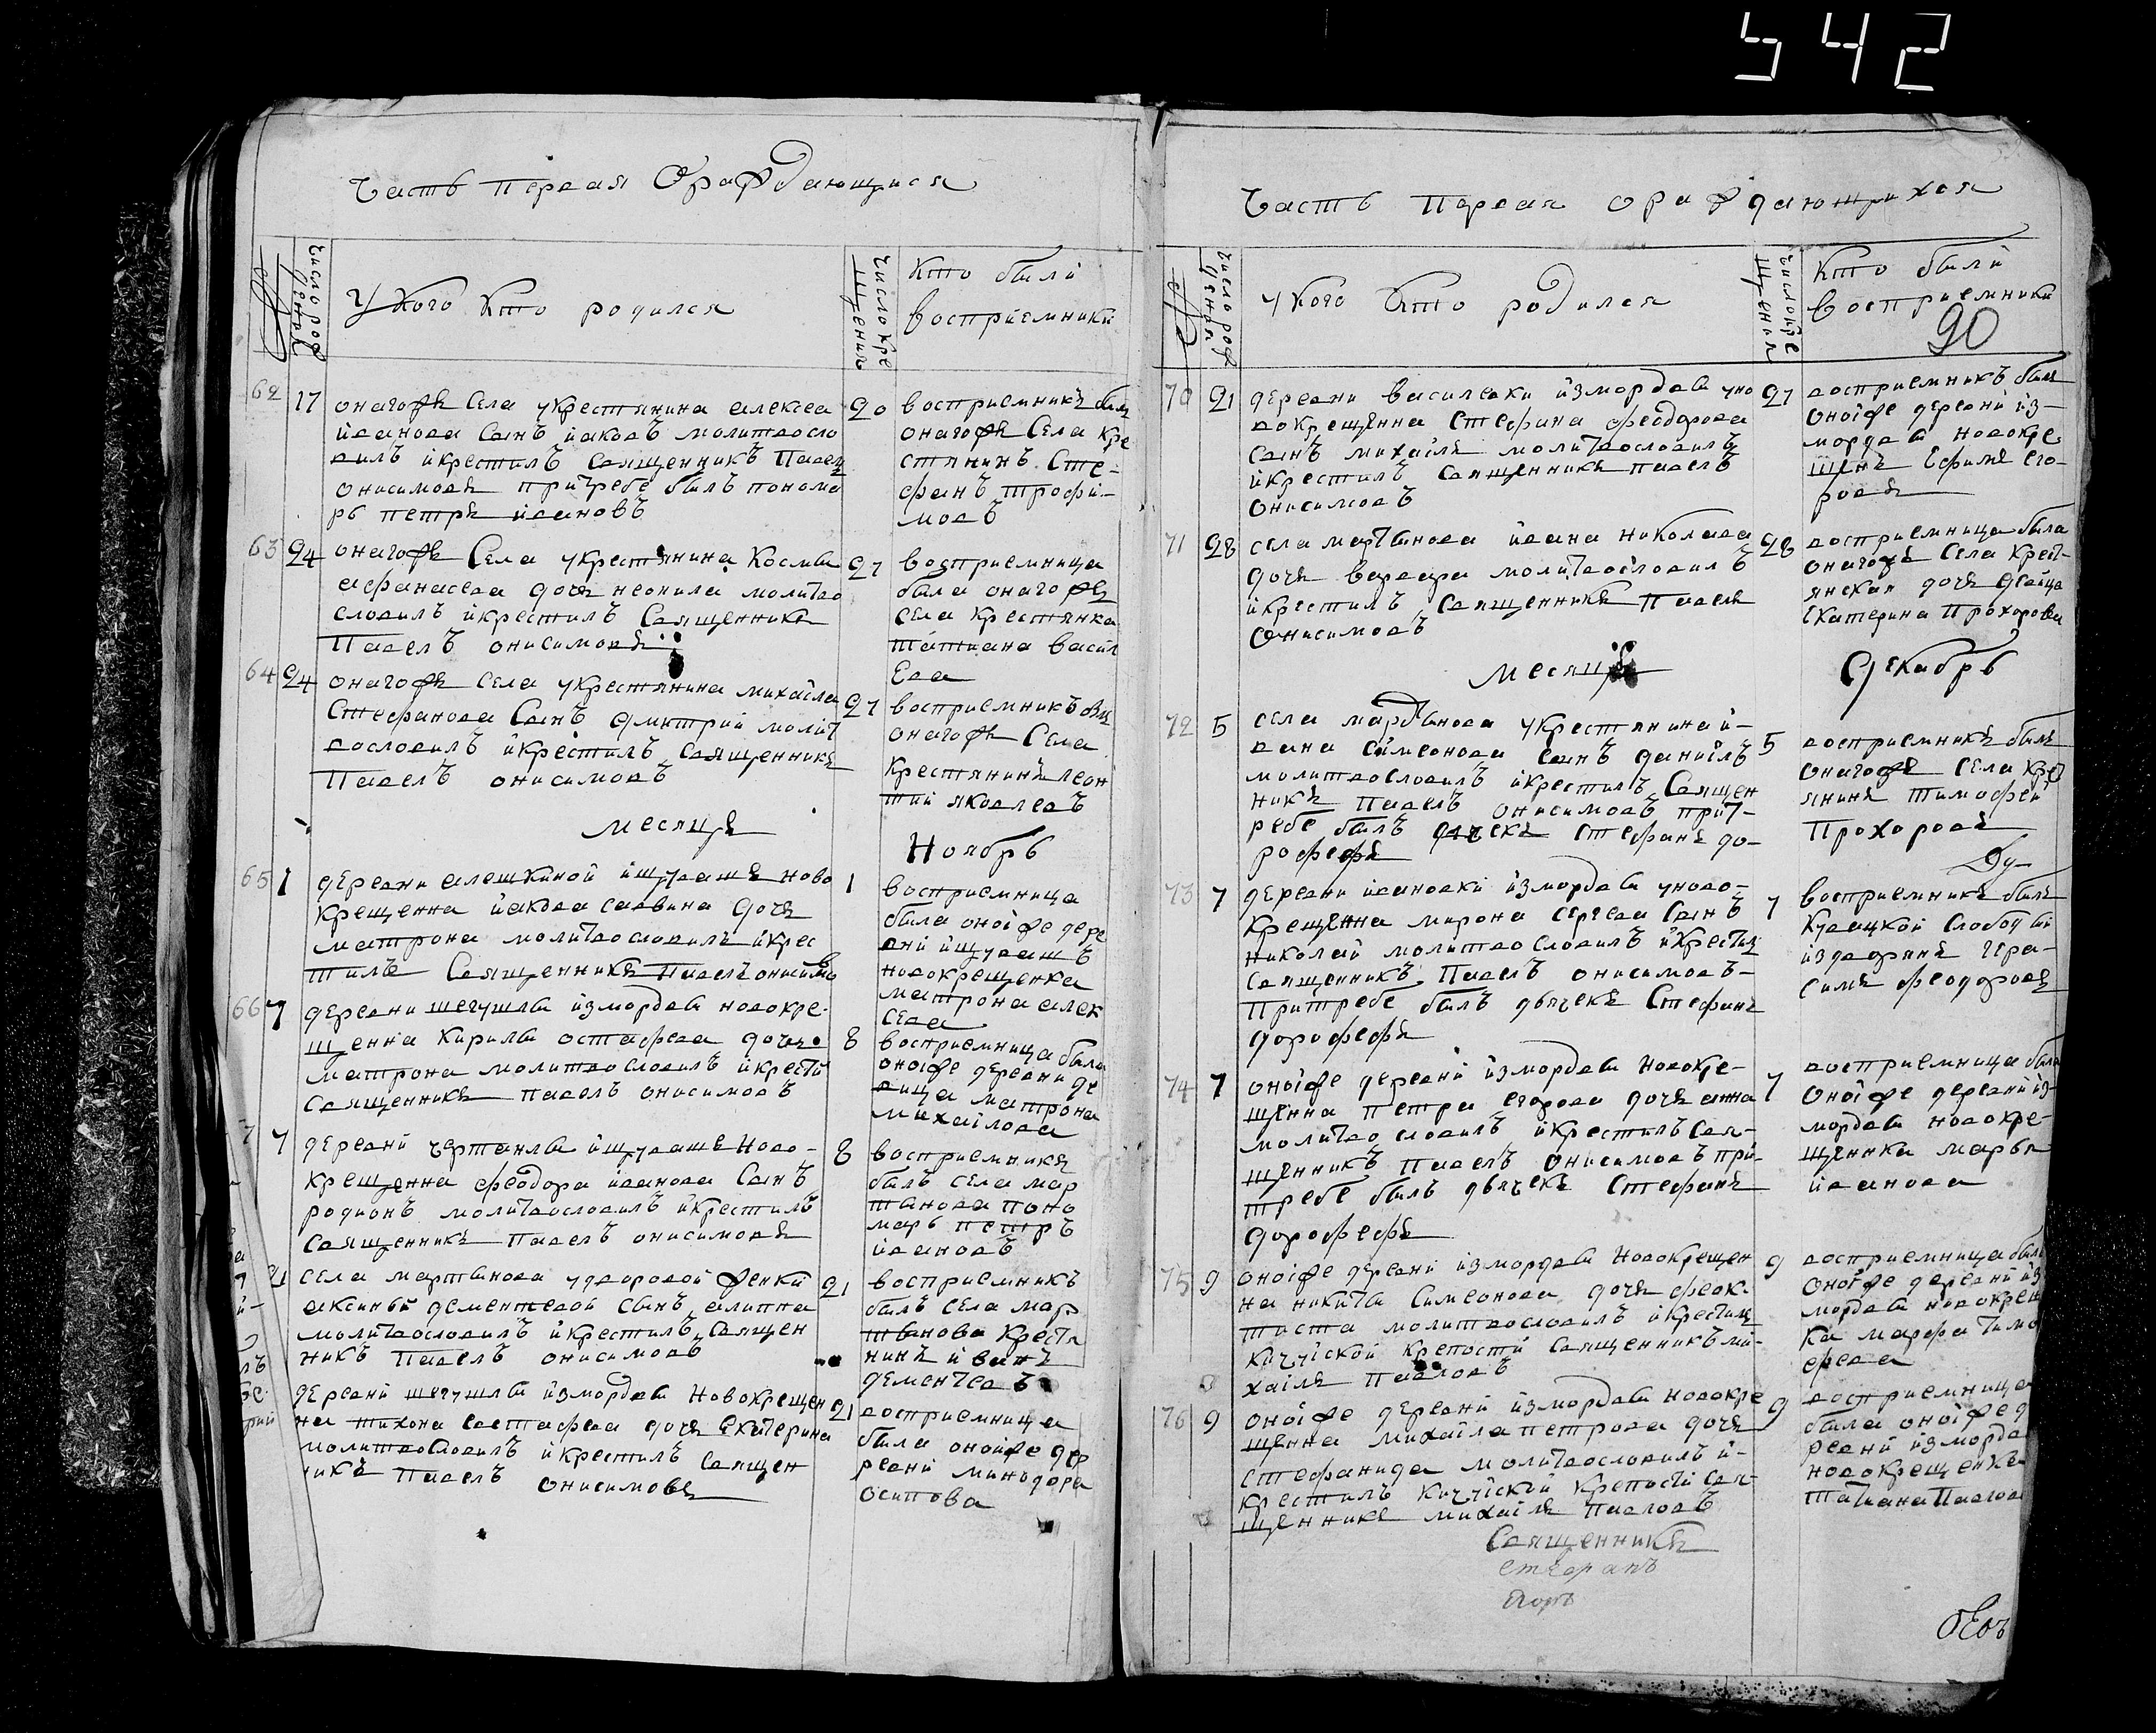 542
Часть перваяОраждающися
№
число рождения
У кого кто родился
число крещения
кто были
восприемники
62 17 онагожъ села укрестянина алексеа
иванова сынъ иаковъ молитвосло
вилъ икрестилъ священникъ Павелъ
онисимовъ притребе былъ понома
рь петръ ивановъ
20 восприемникъ былъ
онагожъ села кре
стянинъ сте-
фанъ трофи-
мовъ
63 24 онагожъ села укрестянина космы
афанасева дочь неонила молитво
словилъ икрестилъ священникъ
Павелъ онисимовъ
27 восприемница
была онагожъ
села крестянка
татиана васил
ева
64 24 онагожъ села укрестянина михаила
Стефанова сынъ дмитрий молит
вословилъ икрестилъ священникъ
Павелъ онисимовъ
27 восприемникъ былъ
онагожъ села
крестянинъ леон
тий яковлевъ
месяцъ Ноябрь
65 1 деревни алешкиной ищувашъ ново
крещенна иакова саввина дочь
матрона молитвословилъ икрес
тилъ священникъ павелъ онисимовъ
1 восприемница
была оноiже дере
вни ищувашъ
новокрещенка
матрона алек
сева
66 7 деревни шегушлы измордвы новокре-
щенна кирилы остафева дочь
матрона молитвословилъ икрести
священникъ павелъ онисимовъ
8 восприемница была
оноiже деревни де
вица матрона
михаилова
7 7 деревни чертанлы ищувашъ ново-
крещенна феодора иванова сынъ
родионъ молитвословилъ икрестилъ
священникъ павелъ онисимовъ
8 восприемникъ
былъ села мар
тынова поно
марь петръ
ивановъ
21 села мартынова удворовой женки
аксиньи дементевой сынъ алиппа
молитвословилъ икрестилъ священ
никъ павелъ онисимовъ
21 восприемникъ
былъ села мар
тынова крестя
нинъ иванъ
дементевъ
деревни шегушлы измордвы новокрещен
на тихона евстафева дочь екатерина
молитвословилъ икрестилъ священ
никъ павелъ онисимовъ
21 восприемница
была оноiже де
ревни минодора
осипова
Часть Первая ораждающихся
№
число рождения
у кого кто родился
число крещения
кто были
восприемники
90
70 21 деревни василевки измордвы уно
вокрещенна стефана феодорова
сынъ михаилъ молитвословилъ
икрестилъ священникъ павелъ
онисимовъ
27 восприемникъ былъ
оноiже деревни из-
мордвы новокре
щенъ ефимъ его-
ровъ
71 28 села мартынова ивана николаева
дочь варвара молитвословилъ
икрестилъ священникъ Павелъ
онисимовъ
28 восприемница была
онагожъ села крест-
янская дочь девица
екатерина Прохорова
месяцъ Декабрь
72 5 села мартынова укрестянина и-
вана симеонова сынъ даниилъ
молитвословилъ икрестилъ священ
никъ павелъ онисимовъ прит-
ребе былъ дячекъ стефанъ до-
рофефъ
5 восприемникъ былъ
онагожъ села крест
янинъ тимофей
Прохоровъ
73 7 деревни ивановки измордвы уново-
крещенна мирона сергева сынъ
николай молитвословилъ икрестилъ
священникъ Павелъ онисимовъ-
Притребе былъ дьячекъ Стефанъ
дорофефъ
7 восприемникъ былъ
слободы
гера-
симъ феодоровъ
74 7 оноiже деревни измордвы новокре-
щенна петра егорова дочь анна
молитвословилъ икрестилъ свя-
щенникъ Павелъ онисимовъ при-
требе былъ дьячекъ Стефанъ
дорофефъ
7 восприемница была
оноiже деревни из-
мордвы новокре-
щенка марья
иванова
75 9 оноiже деревни измордвы новокрещен
на никиты симеонова дочь феок-
тиста молитвословилъ икрестилъ
кичуйской крепости священникъ ми-
хаiлъ павловъ
9 восприемница была
оноiже деревни из
мордвы новокрещен
ка марфа тимо
феева
76 9 оноiже деревни измордвы новокре
щенна михаiла петрова дочь
стефанида молитвословилъ и-
крестилъ кичуйской крепости свя-
щенникъ михаiлъ павловъ
9 восприемница
была оноiже де
ревни измордвы
новокрещенка
татиана Павлова
Священникъ
стефанъ